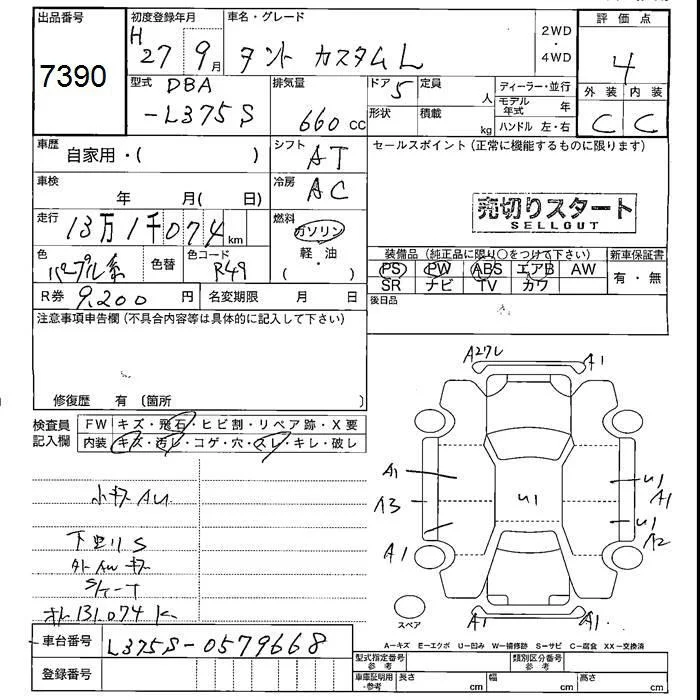 出品番号
7390
初度登録年月
H 27 9 月
車名・グレード
タント カスタム L
2WD
・
4WD
評価点
4
型式
DBA
-L375S
排気量
660 cc
ドア 5
定員
人
形状
積載
kg
ディーラー・並行
モデル年式 年
ハンドル 左・右
外装 内装
C C
車歴
自家用・( )
シフト
AT
車検
年 月( 日)
冷房
AC
走行
13万1千074 km
燃料
ガソリン
・
軽・油
( )
色
パープル系
色替
色コード
R49
R券 9,200 円
名変期限 月 日
セールスポイント(正常に機能するものに限ります)
売切りスタート
SELLOUT
装備品(純正品に限り○をつけて下さい)
新車保証書
PS PW ABS エアB AW
SR ナビ TV カワ
有・無
後日品
注意事項申告欄(不具合内容等は具体的に記入して下さい)
修復歴 有(箇所 )
検査員
記入欄
FW キズ・飛石・ヒビ割・リペア跡・X要
内装 キズ・汚レ・コゲ・穴・スレ・キレ・破レ
小キズ AU
下廻りS
シート
131,074 K
車台番号 L375S-0579668
登録番号
A27L
A1
A1
A3
A1
U1
U1
A1
U1
A2
A1
A1
スペア
A-キズ E-エクボ U-凹み W-補修跡 S-サビ C-腐食 XX-交換済
型式指定番号
参考
類別区分番号
参考
車庫証明用
・参考
長さ cm
幅 cm
高さ cm